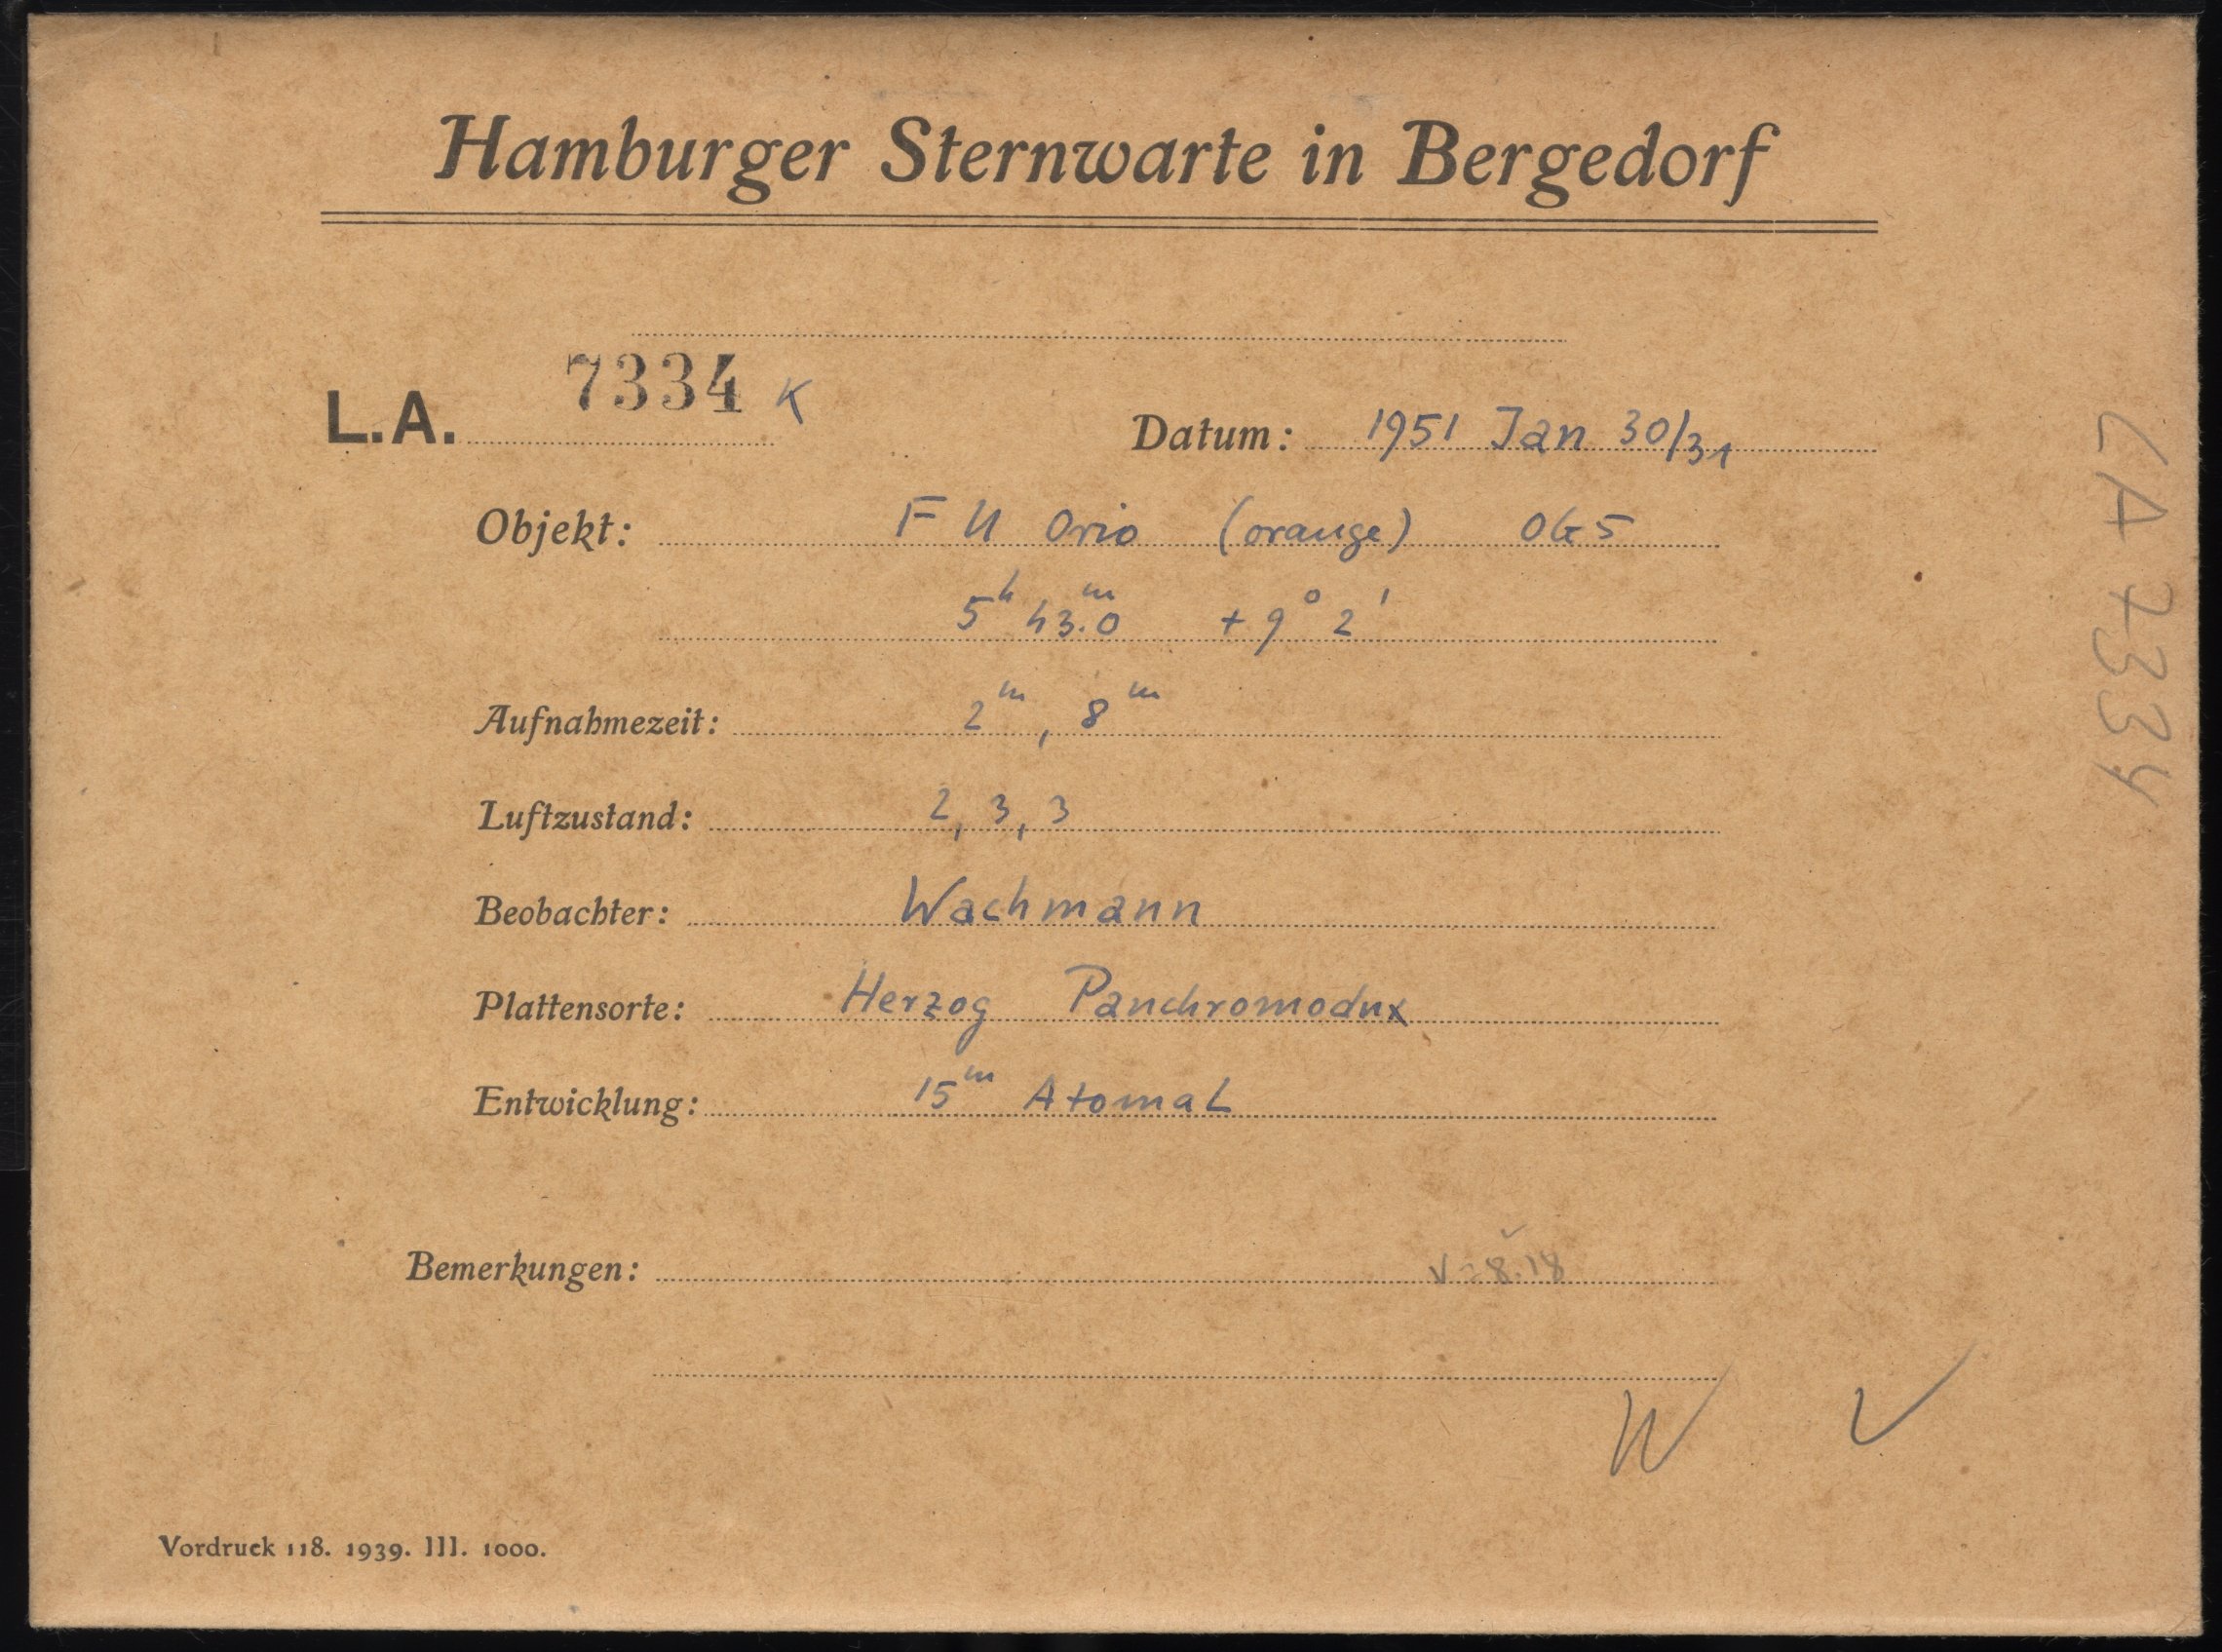 Hamburger Sternwarte in Bergedorf
L.A. 7334 K
Datum: 1951 Jan 30/31
Objekt: FU Orio (orange) OG5
5h 43.m0 +9° 2'
Aufnahmezeit: 2m, 8m
Luftzustand: 2, 3, 3
Beobachter: Wachmann
Plattensorte: Herzog Panchromodux
Entwicklung: 15m Atomal
Bemerkungen: V=8.18
W
Vordruck 118. 1939. III. 1000.
LA 7334